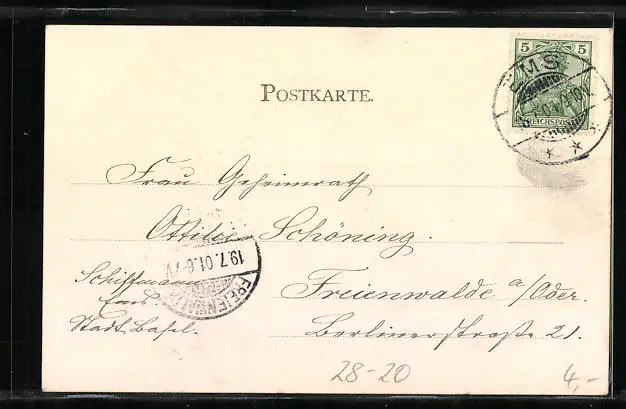 POSTKARTE.
5 5
REICHSPOST
EMS
Frau Geheimrath
Ottilie Schöning.
19.7.01.6-7V
FREIENWALDE
Schiffmann
Ems
Stadt Basel.
Freienwalde a/Oder.
Berlinerstraße 21.
28-20
4,-